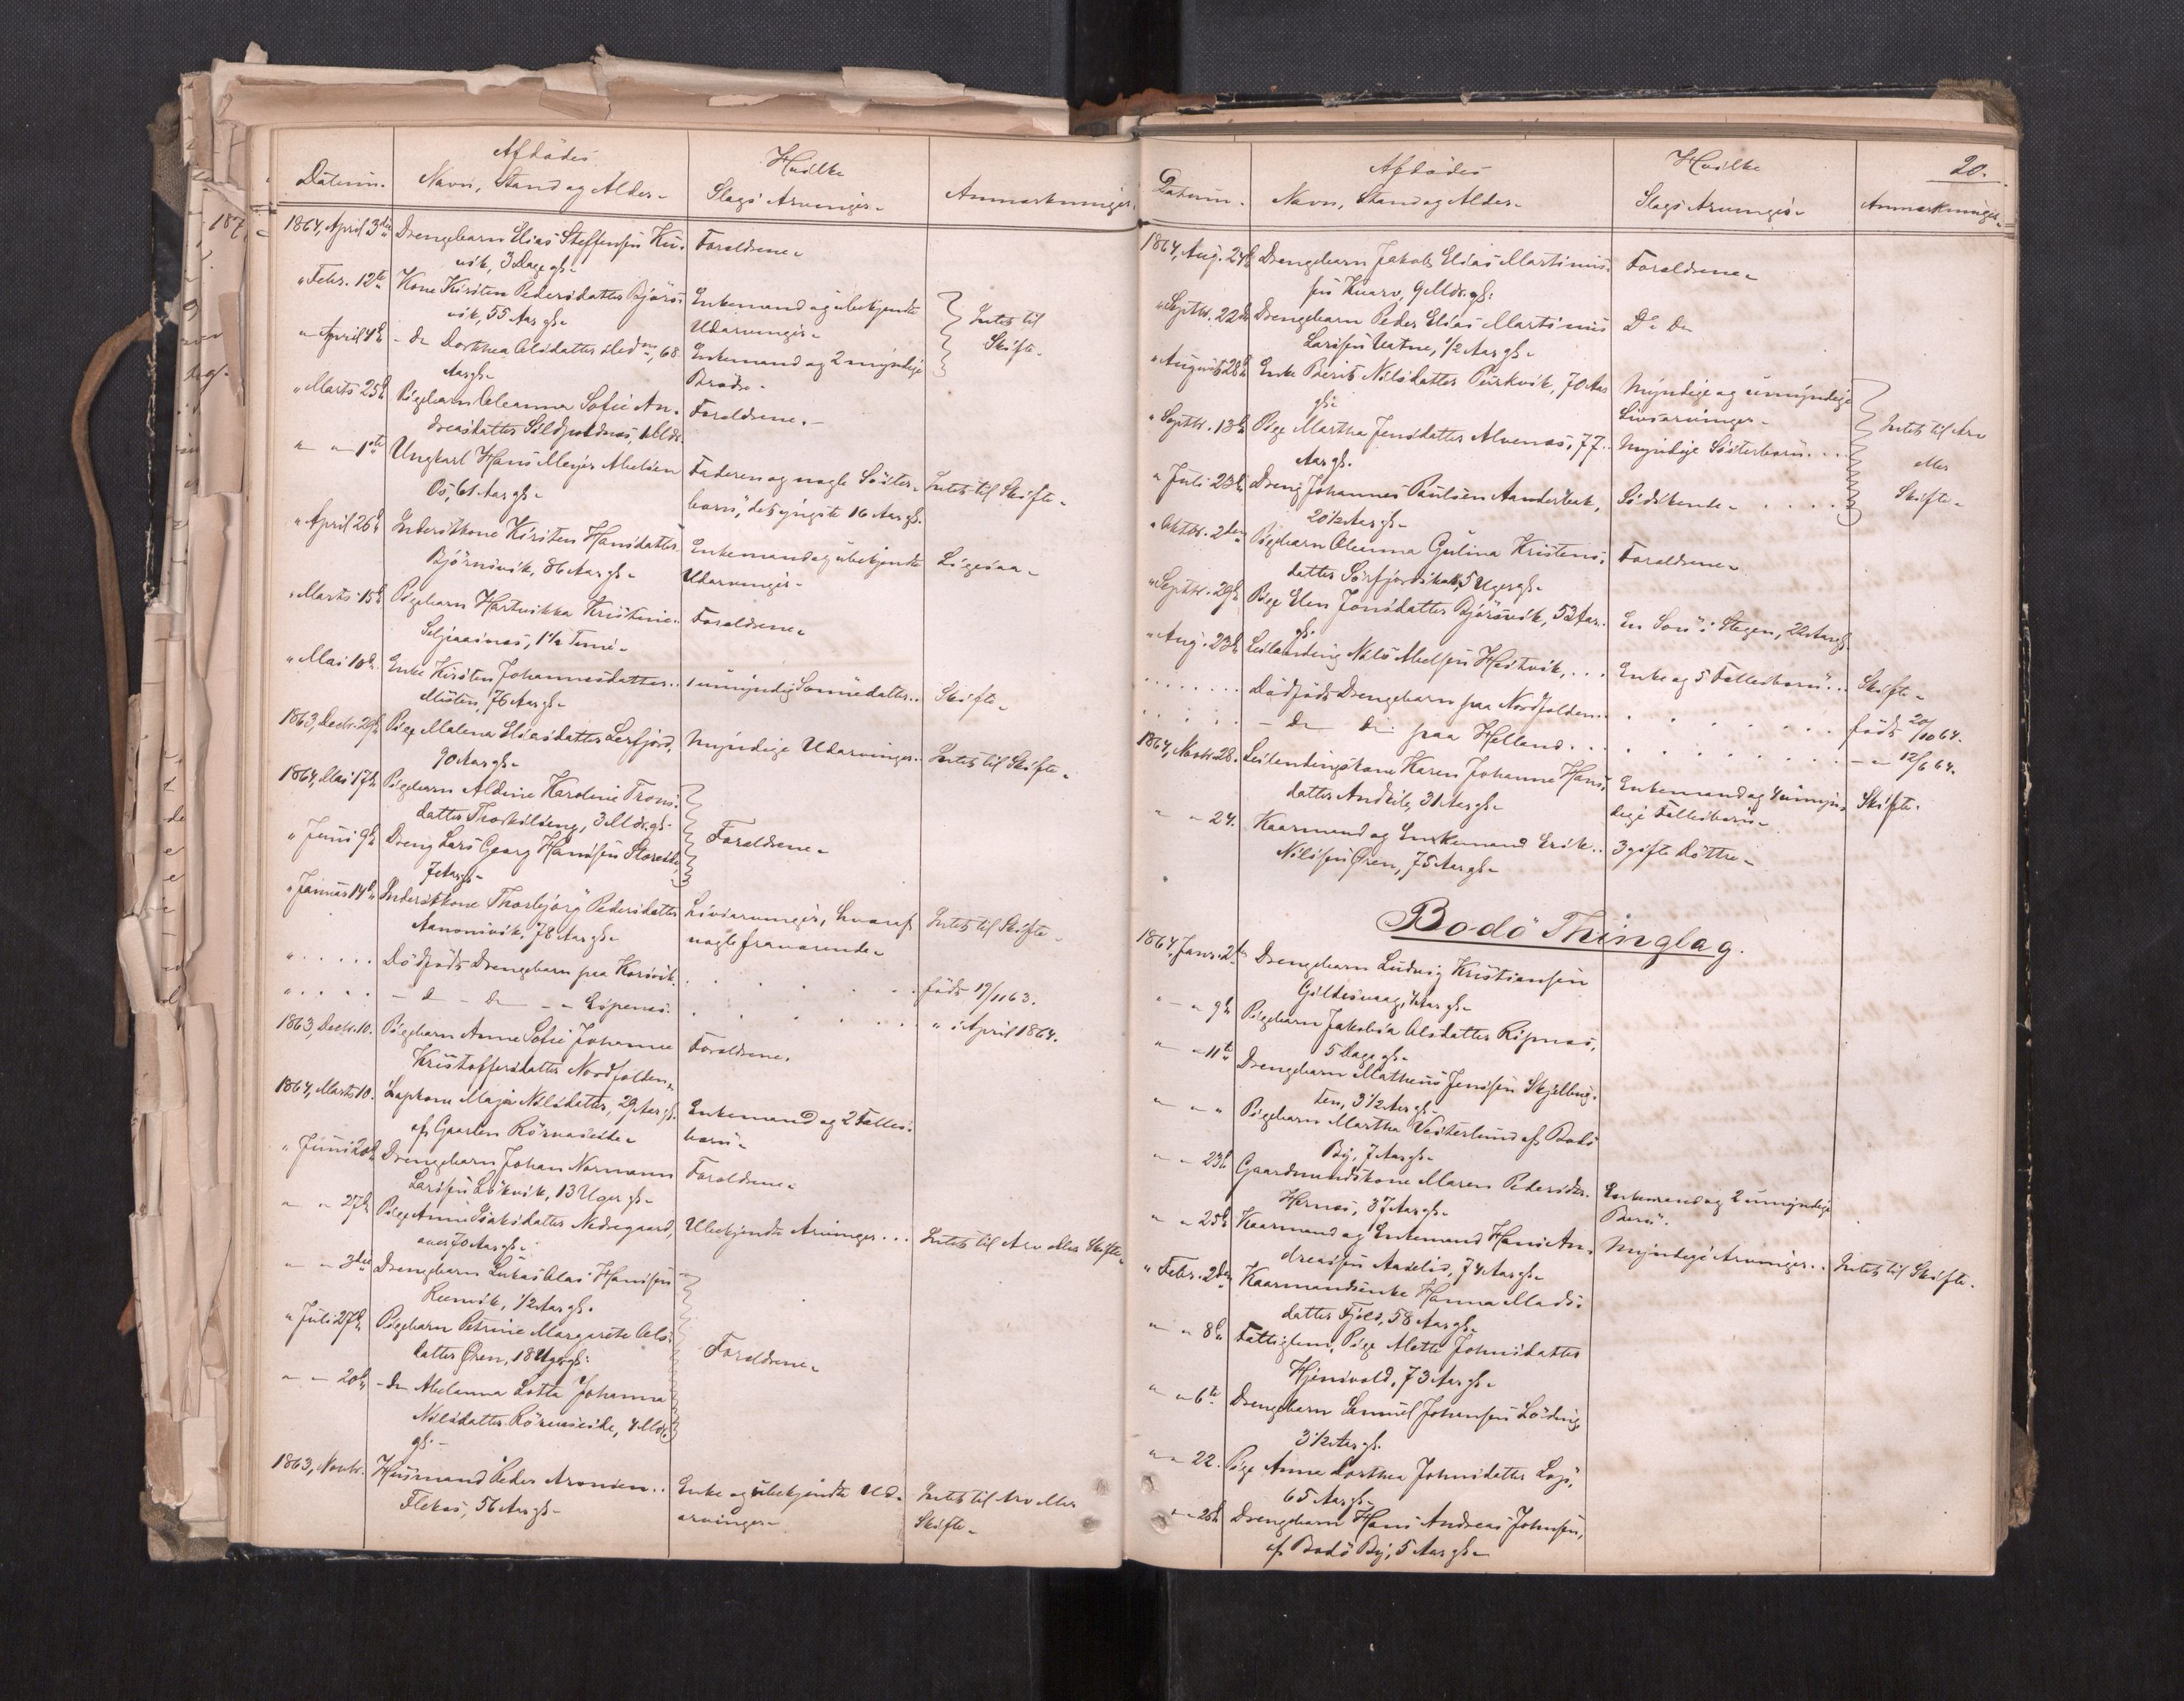 Datum.
Afdödes
Navn, Stand og Alder.
Hvilke
Slags Arvinger.
Anmærkninger.
1864, April 3die Drengebarn Elias Steffensen
vik, 3 Dage gl. Forældrene.
" Febr. 12te Kone Kirsten Pedersdatter Bjørs-
vik, 55 Aar gl. Enkemand og ubekjendte
Udarvinger. Intet til
Skifte.
" April 4de - do Dorthea Olsdatter, 68
Aar gl. Enkemand og 2 myndige
Brødre.
" Marts 25de Pigebarn Oleanna Sofie An-
dreasdatter 1 Mdr. Forældrene.
" " 1ste Ungkarl Hans Meyer Abelsen
Os, 61 Aar gl. Faderen og nogle Söster-
börn, det yngste 16 Aar gl. Intet til Skifte.
" April 26de Inderstkone Kirsten Hansdatter
Björnsvik, 86 Aar gl. Enkemand og ubekjendte
Udarvinger. Ligesaa.
" Marts 15de Pigebarn Hartvikka Kristine
1 1/2 Time. Forældrene.
" Mai 10de Enke Kirsten Johannesdatter
76 Aar gl. 1 umyndig Sönnedatter. Skifte.
1863, Decbr. 29de Pige Malena Eliasdatter Lerfjord,
90 Aar gl. Myndige Udarvinger. Intet til Skifte.
1864, Mai 17de Pigebarn Aldine Karoline Trons-
datter 3 Mdr. gl. Forældrene.
" Juni 9de Dreng Lars Georg Hansen
7 Aar gl.
" Januar 14de Inderstkone Thorbjörg Pedersdatter
78 Aar gl. Livsarvinger, hvoraf
nogle fraværende. Intet til Skifte.
" . . . . Dödfödt Drengebarn paa Korsvik. födt 19/11 63.
" . . . . - do - do - " Espenes. " i April 1864.
1863, Decbr. 10. Pigebarn Anne Sofie Johanne
Kristoffersdatter Nordfolden. Forældrene.
1864, Marts 10. Lapkone Maja Nilsdatter, 29 Aar gl.
af Gaarden Enkemand og 2 Fælles-
börn.
" Juni 20de Drengebarn Johan Normann
Larsen Lökvik, 13 Uger gl. Forældrene.
" " 27de Pige Anne Isaksdatter Nedregaard,
over 70 Aar gl. Ubekjendte Arvinger... Intet til Arv eller Skifte.
" " 3die Drengebarn Lukas Olai Hansen
1/2 Aar gl.
" Juli 27de Pigebarn Petrine Margarete Ols-
datter Ören, 18 Uger gl. Forældrene.
" " 20de - do Abelanna Lotta Johanna
Nilsdatter 4 Mdr.
gl.
1863, Novbr. Husmand Peder Aronsen
Flekes, 56 Aar gl. Enke og ubekjendte Ud-
arvinger. Intet til Arv eller
Skifte.
20.
Datum.
Afdödes
Navn, Stand og Alder.
Hvilke
Slags Arvinger.
Anmærkninger.
1864, Aug. 24de Drengebarn Jakob Elias Martinus-
sen Kvarv, 9 Mdr. gl. Forældrene.
" Septbr. 22de Drengebarn Peder Elias Martinus
Larsen Vatne, 1/2 Aar gl. Do Do
" August 28de Enke Berit Nilsdatter 70 Aar
gl. Myndige og umyndige
Livsarvinger.
" Septbr. 13de Pige Martha Jensdatter Alvenæs, 77
Aar gl. Myndige Söskendebörn. Intet til Arv
eller
Skifte.
" Juli 23de Dreng Johannes Paulsen
20 1/2 Aar gl. Södskende.
" Oktbr. 2den Pigebarn Oleanna Gulina Kristens-
datter 5 Uger gl. Forældrene.
" Septbr. 29de Pige Elen Jonsdatter Bjørsvik, 53 Aar
gl. En Sön i Stegen, 22 Aar gl.
" Aug. 23de Leilænding Nils Abelsen Hestvik, ... Enke og 5 Fællesbörn... Skifte.
. . . . . . Dödfödt Drengebarn paa Nordfolden. födt 20/10 64.
. . . . . - do do paa Helland. - " 12/6 64.
1864, Novbr. 28. Leilendingskone Karen Johanne Hans-
datter 31 Aar gl. Enkemand og 4 umyn-
dige Fællesbörn. Skifte.
" " 24. Kaarmand og Enkemand Erik
Nilsen Ören, 75 Aar gl. 3 gifte Döttre.
Bodö Thinglag.
1864, Janr. 2de Drengebarn Ludvig Kristiansen
Gildesvaag, Aar gl.
" " 9de Pigebarn Jakobia Olsdatter Ripnæs,
5 Dage gl.
" " 11te Drengebarn Matheus Jensen Skjelbug-
ten, 3 1/2 Aar gl.
" " " Pigebarn Martha Vesterlund af Bodö
By, 7 Aar gl.
" " 23de Gaardmandskone Maren Pedersdtr.
Hernæs, 37 Aar gl. Enkemand og 2 umyndige
Börn.
" " 25de Kaarmand og Enkemand Hans An-
dreassen 74 Aar gl. Myndige Arvinger. Intet til Skifte.
" Febr. 2den Kaarmandsenke Hanna Mads-
datter 58 Aar gl.
" " 8de Fattiglem, Pige Mette Johnsdatter
73 Aar gl.
" " 6te Drengebarn Samuel Johansen Löding
3 1/2 Aar gl.
" " 22. Pige Anna Dorthea Johnsdatter
65 Aar gl.
" " 25de Drengebarn Hans Andreas Johnsen,
af Bodö By, 5 Aar gl.